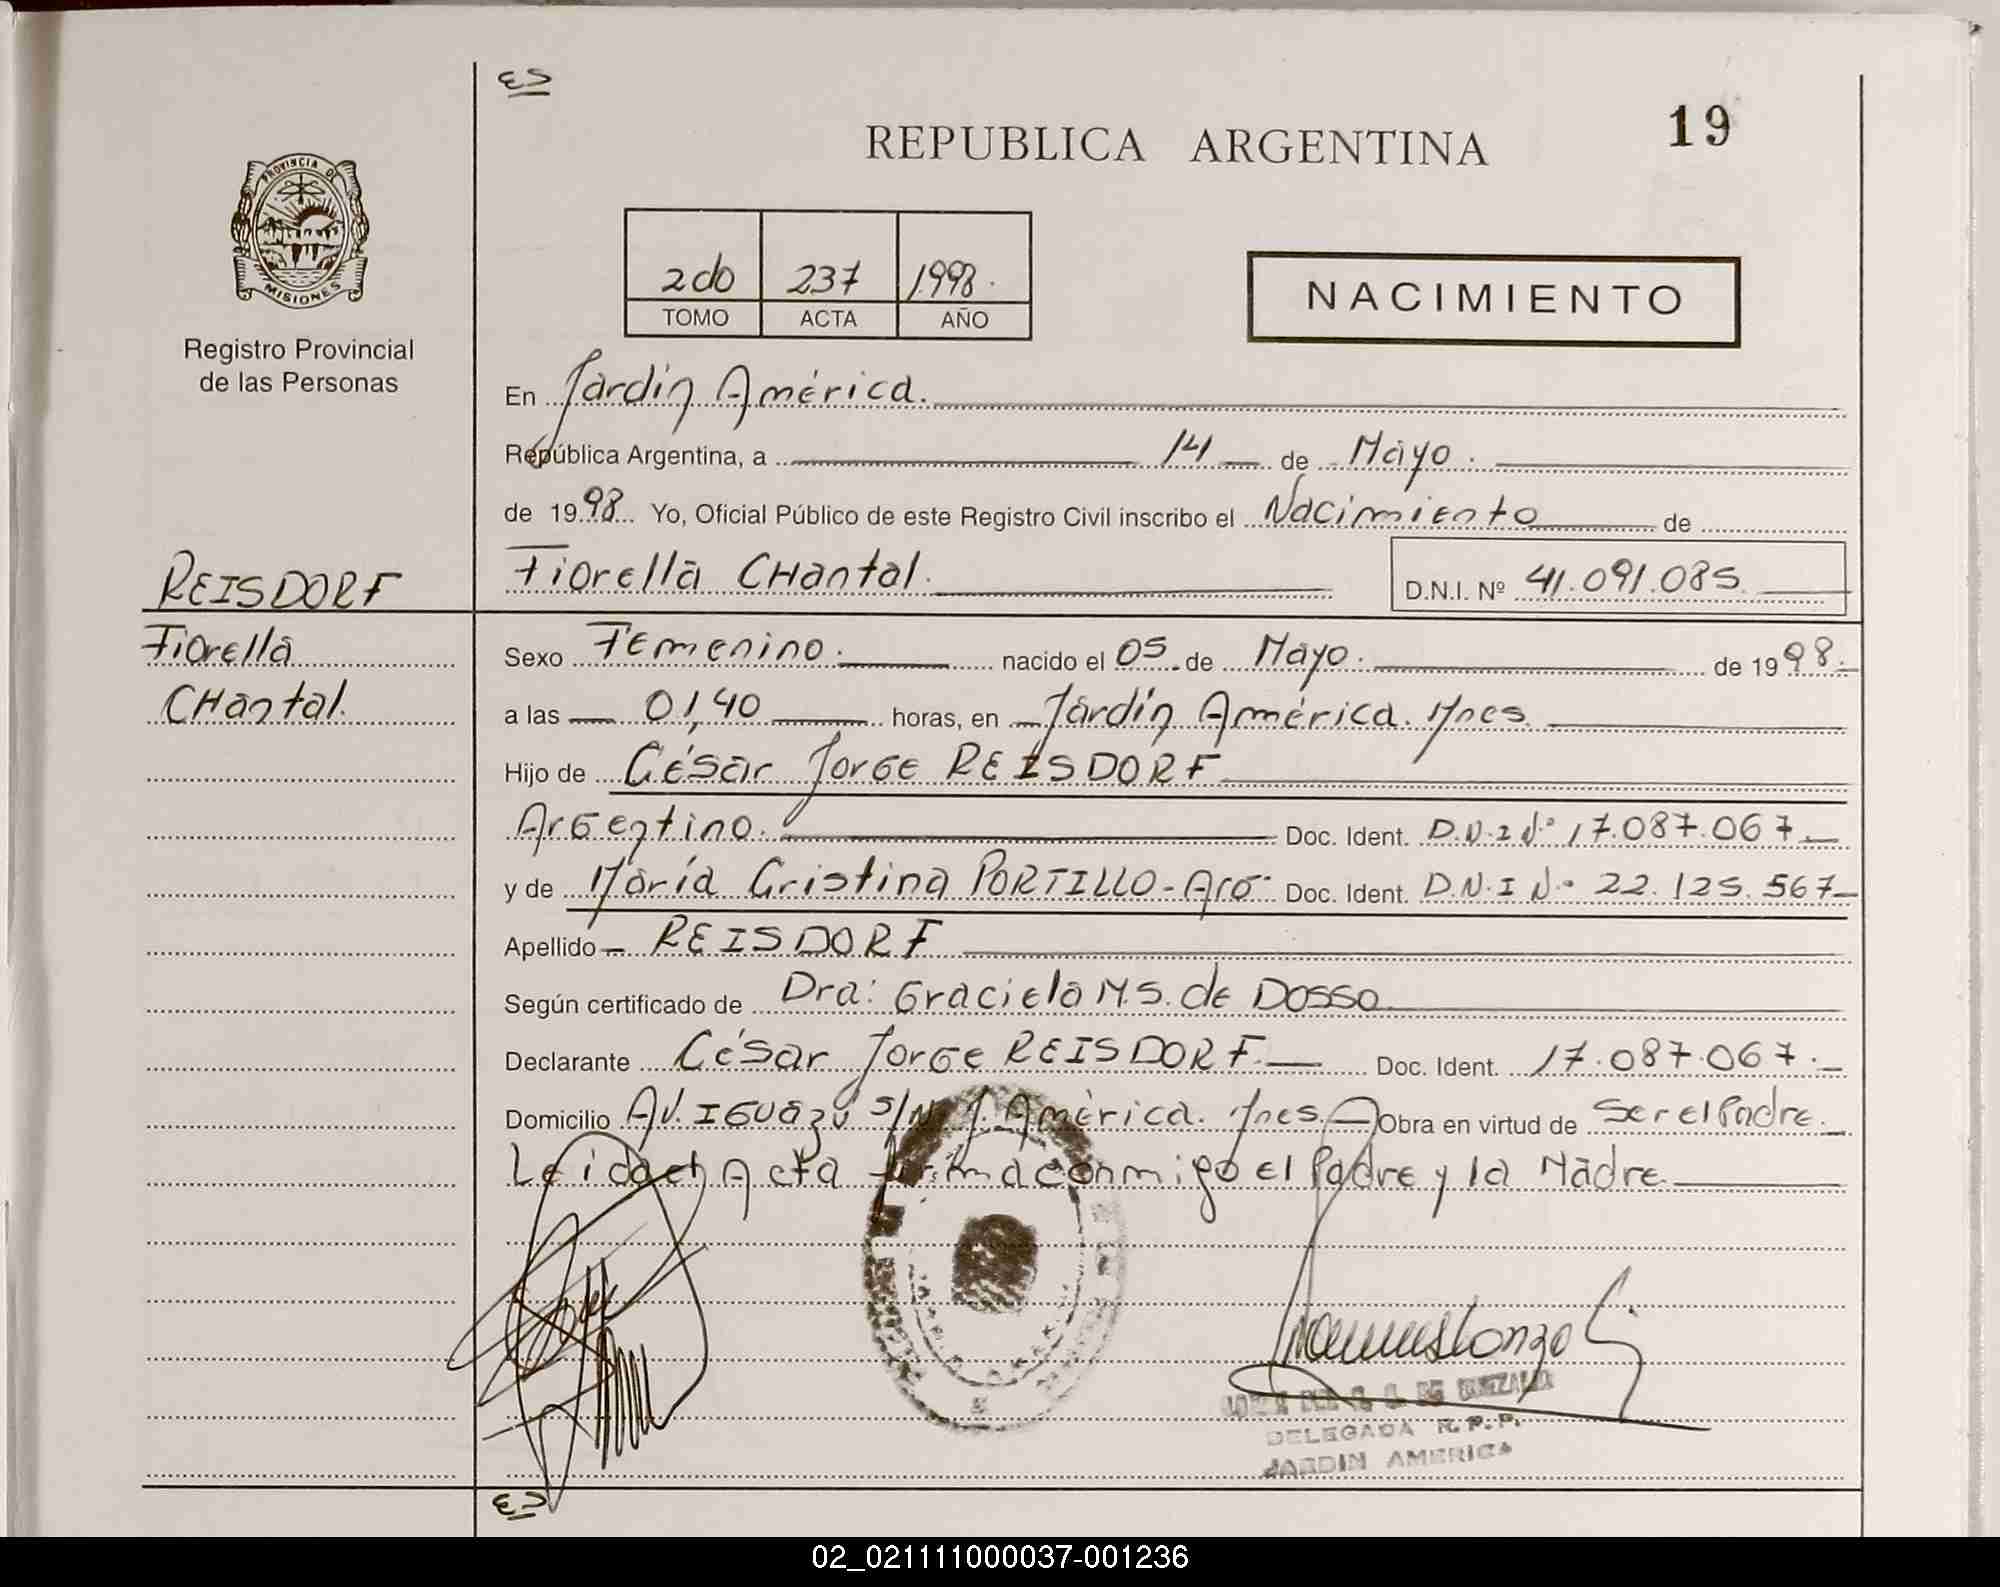 ES
19
REPUBLICA ARGENTINA
PROVINCIA DE
MISIONES
Registro Provincial
de las Personas
2do 237 1998.
TOMO ACTA AÑO
NACIMIENTO
En Jardín América.
República Argentina, a 14 de Mayo.
de 1998. Yo, Oficial Público de este Registro Civil inscribo el Nacimiento de
Fiorella CHantal. D.N.I. Nº 41.091.085
REISDORF
Fiorella
CHantal.
Sexo Femenino. nacido el 05 de Mayo. de 1998.
a las 01,40 horas, en Jardín América. Mnes.
Hijo de César Jorge REISDORF
Argentino. Doc. Ident. D.N.I Nº 17.087.067
y de María Cristina PORTILLO - Arg. Doc. Ident. D.N.I Nº 22.125.567
Apellido REISDORF
Según certificado de Dra: Graciela M.S. de Dosso
Declarante César Jorge REISDORF. Doc. Ident. 17.087.067.
Domicilio Av. Iguazú S/Nº J. América. Mnes Obra en virtud de Ser el Padre.
Leida el Acta firma conmigo el Padre y la Madre.
DELEGADA R.P.P.
JARDIN AMERICA
ES
02_021111000037-001236